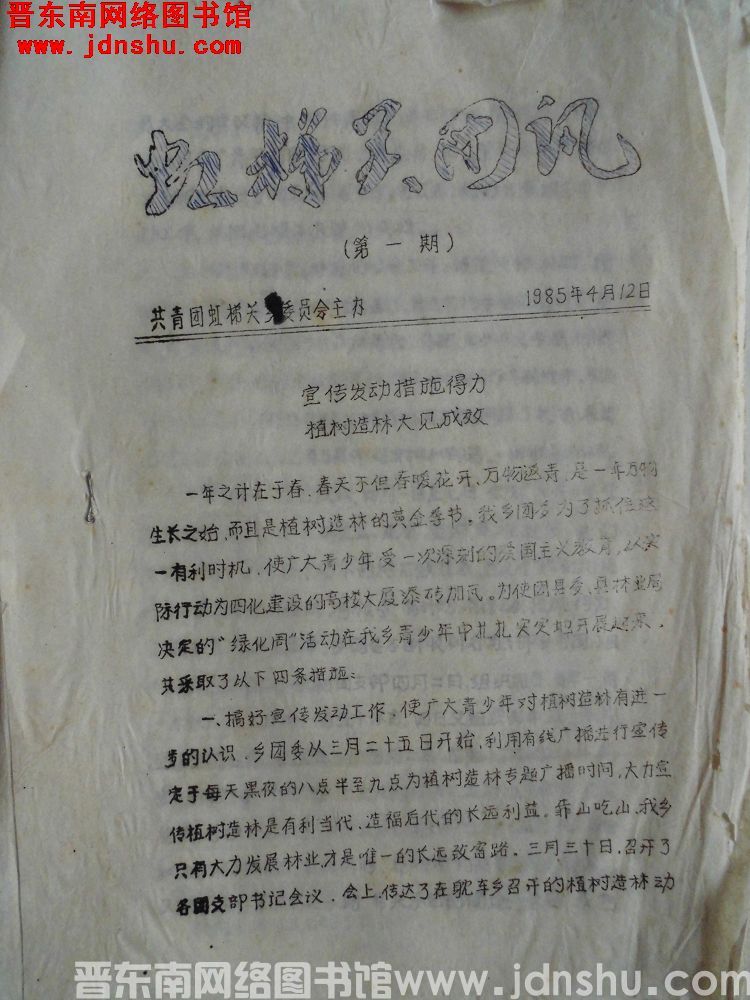 晋东南网络图书馆
www.jdnshu.com
虹梯关团讯
(第一期)
共青团虹梯关乡委员会主办
1985年4月12日
宣传发动措施得力
植树造林大见成效
一年之计在于春,春天不但春暖花开、万物返青,是一年万物
生长之始,而且是植树造林的黄金季节。我乡团委为了抓住这
一有利时机,使广大青少年受一次深刻的爱国主义教育,以实
际行动为四化建设的高楼大厦添砖加瓦。为使团县委、县林业局
决定的“绿化周”活动在我乡青少年中扎扎实实地开展起来,
共采取了以下四条措施:
一、搞好宣传发动工作,使广大青少年对植树造林有进一
步的认识。乡团委从三月二十五日开始,利用有线广播进行宣传
定于每天黑夜的八点半至九点为植树造林专题广播时间,大力宣
传植树造林是有利当代、造福后代的长远利益。靠山吃山,我乡
只有大力发展林业,才是唯一的长远致富路。三月三十日,召开了
各团支部书记会议,会上,传达了在驼车乡召开的植树造林动
晋东南网络图书馆www.jdnshu.com